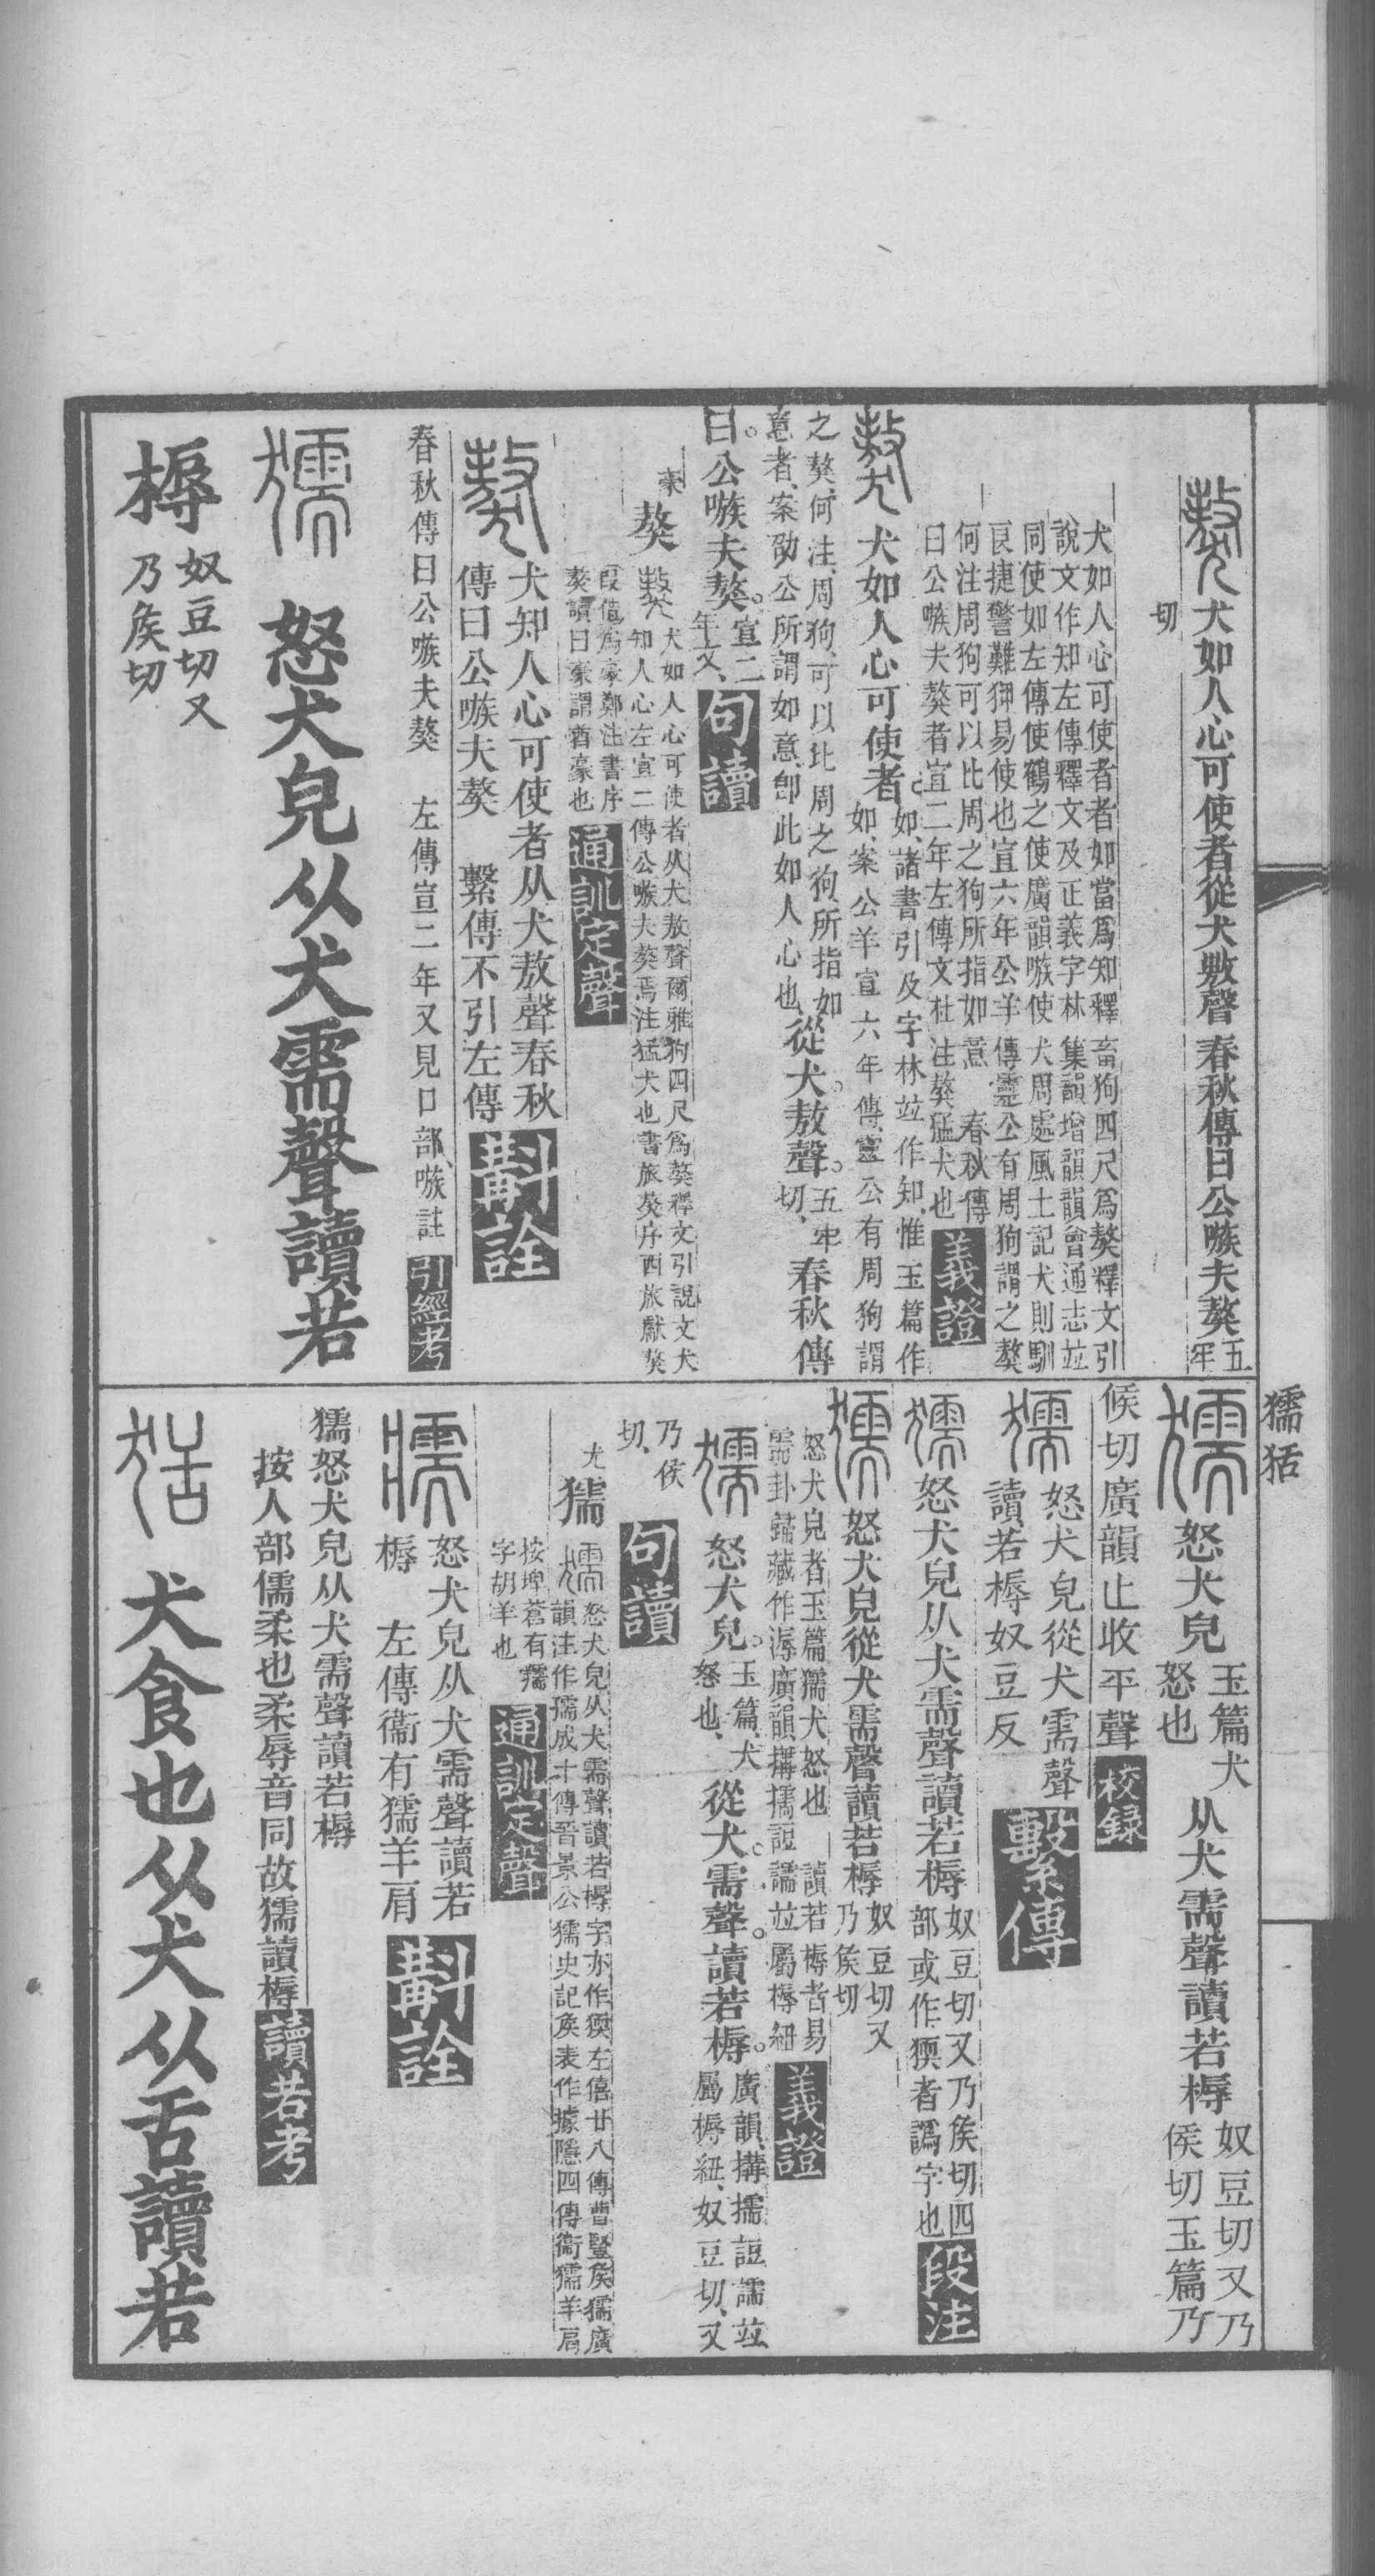 獳𤞞
犬如人心可使者從犬敖聲春秋傳曰公嗾夫獒五牢
切
犬如人心可使者者如當爲知釋畜狗四尺爲獒釋文引
說文作知左傳釋文及正義字林集韻增韻韻會通志竝
同使如左傳使鶴之使廣韻嗾使犬周處風土記犬則馴
良捷警難狎易使也宣六年公羊傳靈公有周狗謂之獒
何注周狗可以比周之狗所指如意　春秋傳
曰公嗾夫獒者宣二年左傳文杜注獒猛犬也義證
犬如人心可使者如、諸書引及字林竝作知、惟玉篇作
如、案公羊宣六年傳、靈公有周狗謂
之獒、何注、周狗、可以比周之狗所指如
意者、案劭公所謂如意、卽此如人心也從犬。敖聲。五牢
切、春秋傳
曰。公嗾夫獒。宣二
年文、句讀
豪獒犬如人心可使者从犬敖聲爾雅狗四尺爲獒釋文引說文犬
知人心左宣二傳公嗾夫獒焉注猛犬也書旅獒序西旅獻獒
叚借爲豪鄭注書序
獒讀曰豪謂酋豪也通訓定聲
犬知人心可使者从犬敖聲春秋
傳曰公嗾夫獒　繫傳不引左傳斠詮
春秋傳曰公嗾夫獒　左傳宣二年又見口部、嗾註引經考
獳　怒犬皃从犬需聲讀若
槈奴豆切又
乃矦切
獳怒犬皃玉篇犬
怒也从犬需聲讀若槈奴豆切又乃
侯切玉篇乃
候切廣韻止收平聲校録
獳怒犬皃從犬需聲
讀若槈奴豆反繫傳
獳怒犬皃从犬需聲讀若槈奴豆切又乃矦切四
部或作㺎者譌字也段注
獳怒犬皃從犬需聲讀若槈奴豆切又
乃矦切
怒犬皃者玉篇獳犬怒也　讀若槈者易
需卦歸藏作溽廣韻搆擩䛠譳竝屬槈紐義證
獳怒犬皃。玉篇、犬
怒也、從犬。需聲。讀若槈。廣韻、搆擩䛠譳竝
屬槈紐、奴豆切、又
乃侯
切、句讀
尤獳怒犬皃从犬需聲讀若槈字亦作㺎左僖廿八傳曹豎矦獳廣
韻注作獳成十傳晉景公獳史記矦表作據隱四傳衞獳羊肩
按埤蒼有獳
字胡羊也通訓定聲
獳怒犬皃从犬需聲讀若
槈　左傳衞有獳羊肩斠詮
獳怒犬皃从犬需聲讀若槈
按人部儒柔也柔辱音同故獳讀槈讀若考
𤞞　犬食也从犬从舌讀若